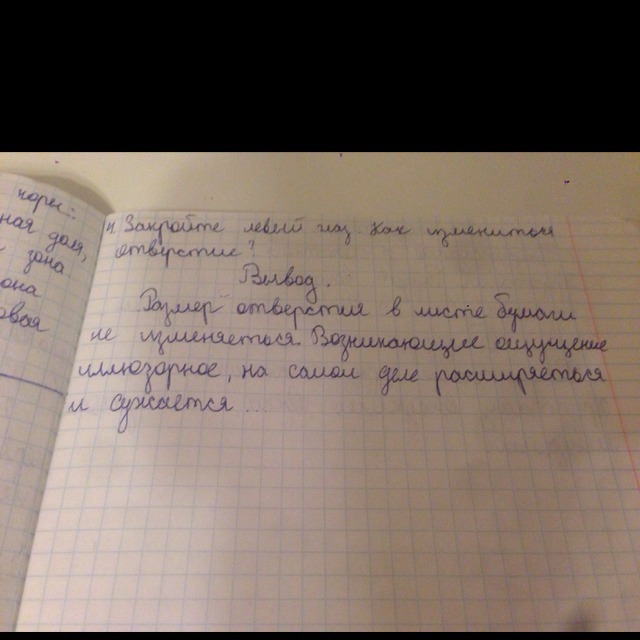 коры:
ная доля,
зона
она
овая
4. Закройте левый глаз. Как измениться
отверстие?
Вывод.
Размер отверстия в листе бумаги
не изменяеться. Возникающие ощущение
иллюзорное, на самом деле расширяеться
и сужается...